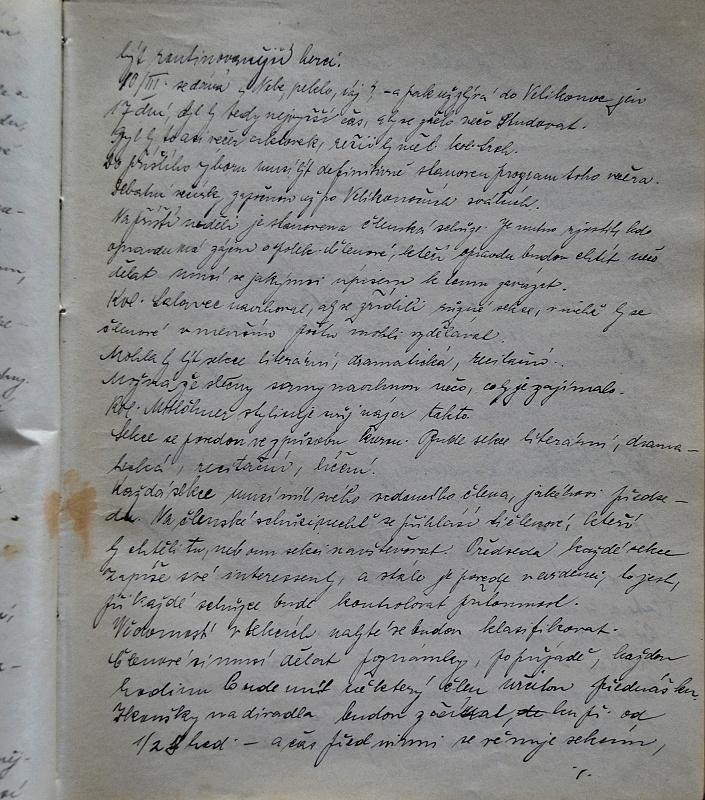 být rautinovanější herci.
10/III. se dává „Nebe, peklo, ráj", – a pak užzbývá do Velikonoc jen
17 dní, byl by tedy nejvyšší čas, aby se začlo něco studovat.
Byl by to asi večer aktovek, režii by měl kol.
Do příštího výboru musí být definitivně stanoven program toho večera.
Debatní večírek, započnou až po Velikonočních svátcích.
Na příští neděli je stanovena členská schůze. Je nutno zjistit, kdo
opravdu má zájem o spolek. Členové, kteří opravdu budou chtít něco
dělat musí se jakýmsi upisem k tomu zavázat.
Kol. navrhoval, aby se zřídili různé sekce, v nichž by se
členové v menším počtu mohli vzdělávat.
Mohla by být sekce literární, dramatická, recitační.
Možná že členy samy navrhnou něco, co by je zajímalo.
Kol. stylisuje svůj názor takto.
Sekce se povedou ve způsobu kursu. Bude sekce literární, drama-
tická, recitační, líčení.
Každá sekce musí mít svého vedoucího člena, jakéhosi předse-
du. Na členské schůzi nechť se přihlásí ti členové, kteří
by chtěli tu, neb onu sekci navštěvovat. Předseda každé sekce
zapíše své interessenty, a stále je povede v evidenci, to jest,
při každé schůzce bude kontrolovat přítomnost.
Vědomosti v sekcích nabyté se budou klasifikovat.
Členové si musí dělat poznámky, po případě, každou
hodinu bude mít některý člen určitou přednášku.
Zkoušky na divadla budou začínat, na př. od
1/2 8 hod. – a čas před nimi se věnuje sekcím,